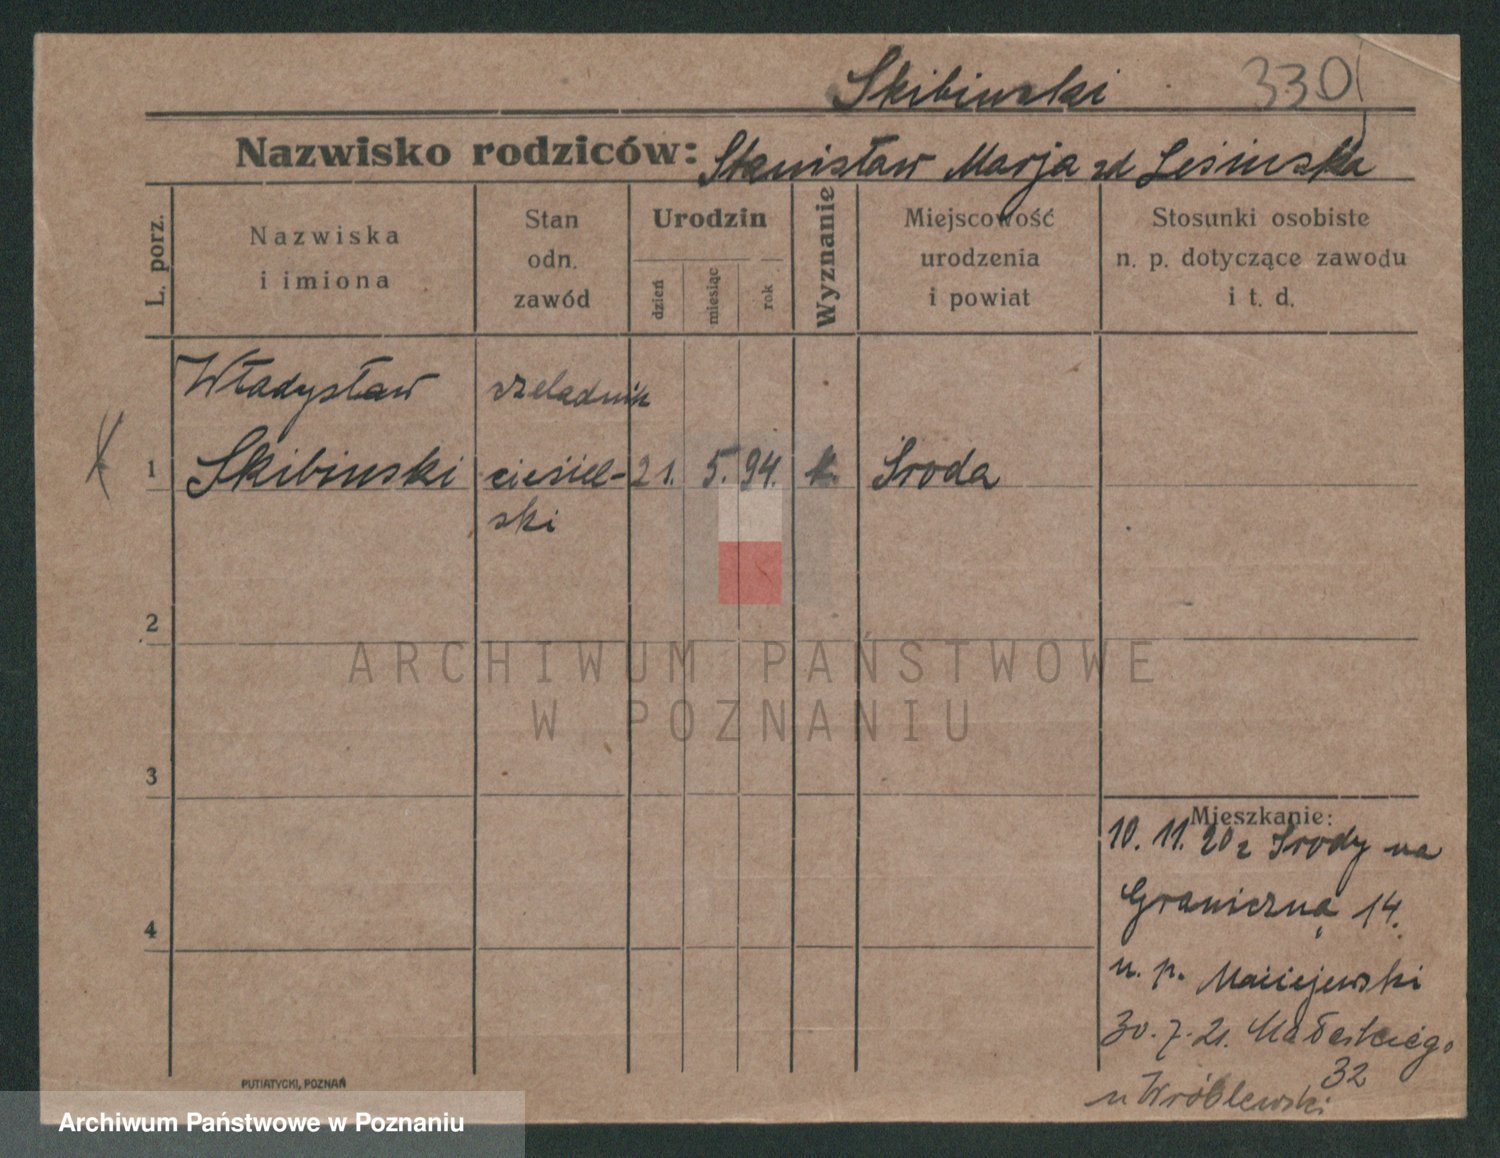 Skibinski 3301
Nazwisko rodziców: Stanisław Marja zd Leśinska
L. porz.
Nazwiska
i imiona
Stan
odn.
zawód
Urodzin
dzień
miesiąc
rok
Wyznanie
Miejscowość
urodzenia
i powiat
Stosunki osobiste
n. p. dotyczące zawodu
i t. d.
Władysław czeladnik
1 Skibinski ciesiel- 21. 5. 94. k. Środa
ski
2
ARCHIWUM PAŃSTWOWE
W POZNANIU
3
Mieszkanie:
10. 11. 20 z Środy na
Graniczną 14.
4
u. p. Maciejewski
30. 7. 21. Małeckiego
32
u Wróblewski
PUTIATYCKI, POZNAŃ
Archiwum Państwowe w Poznaniu